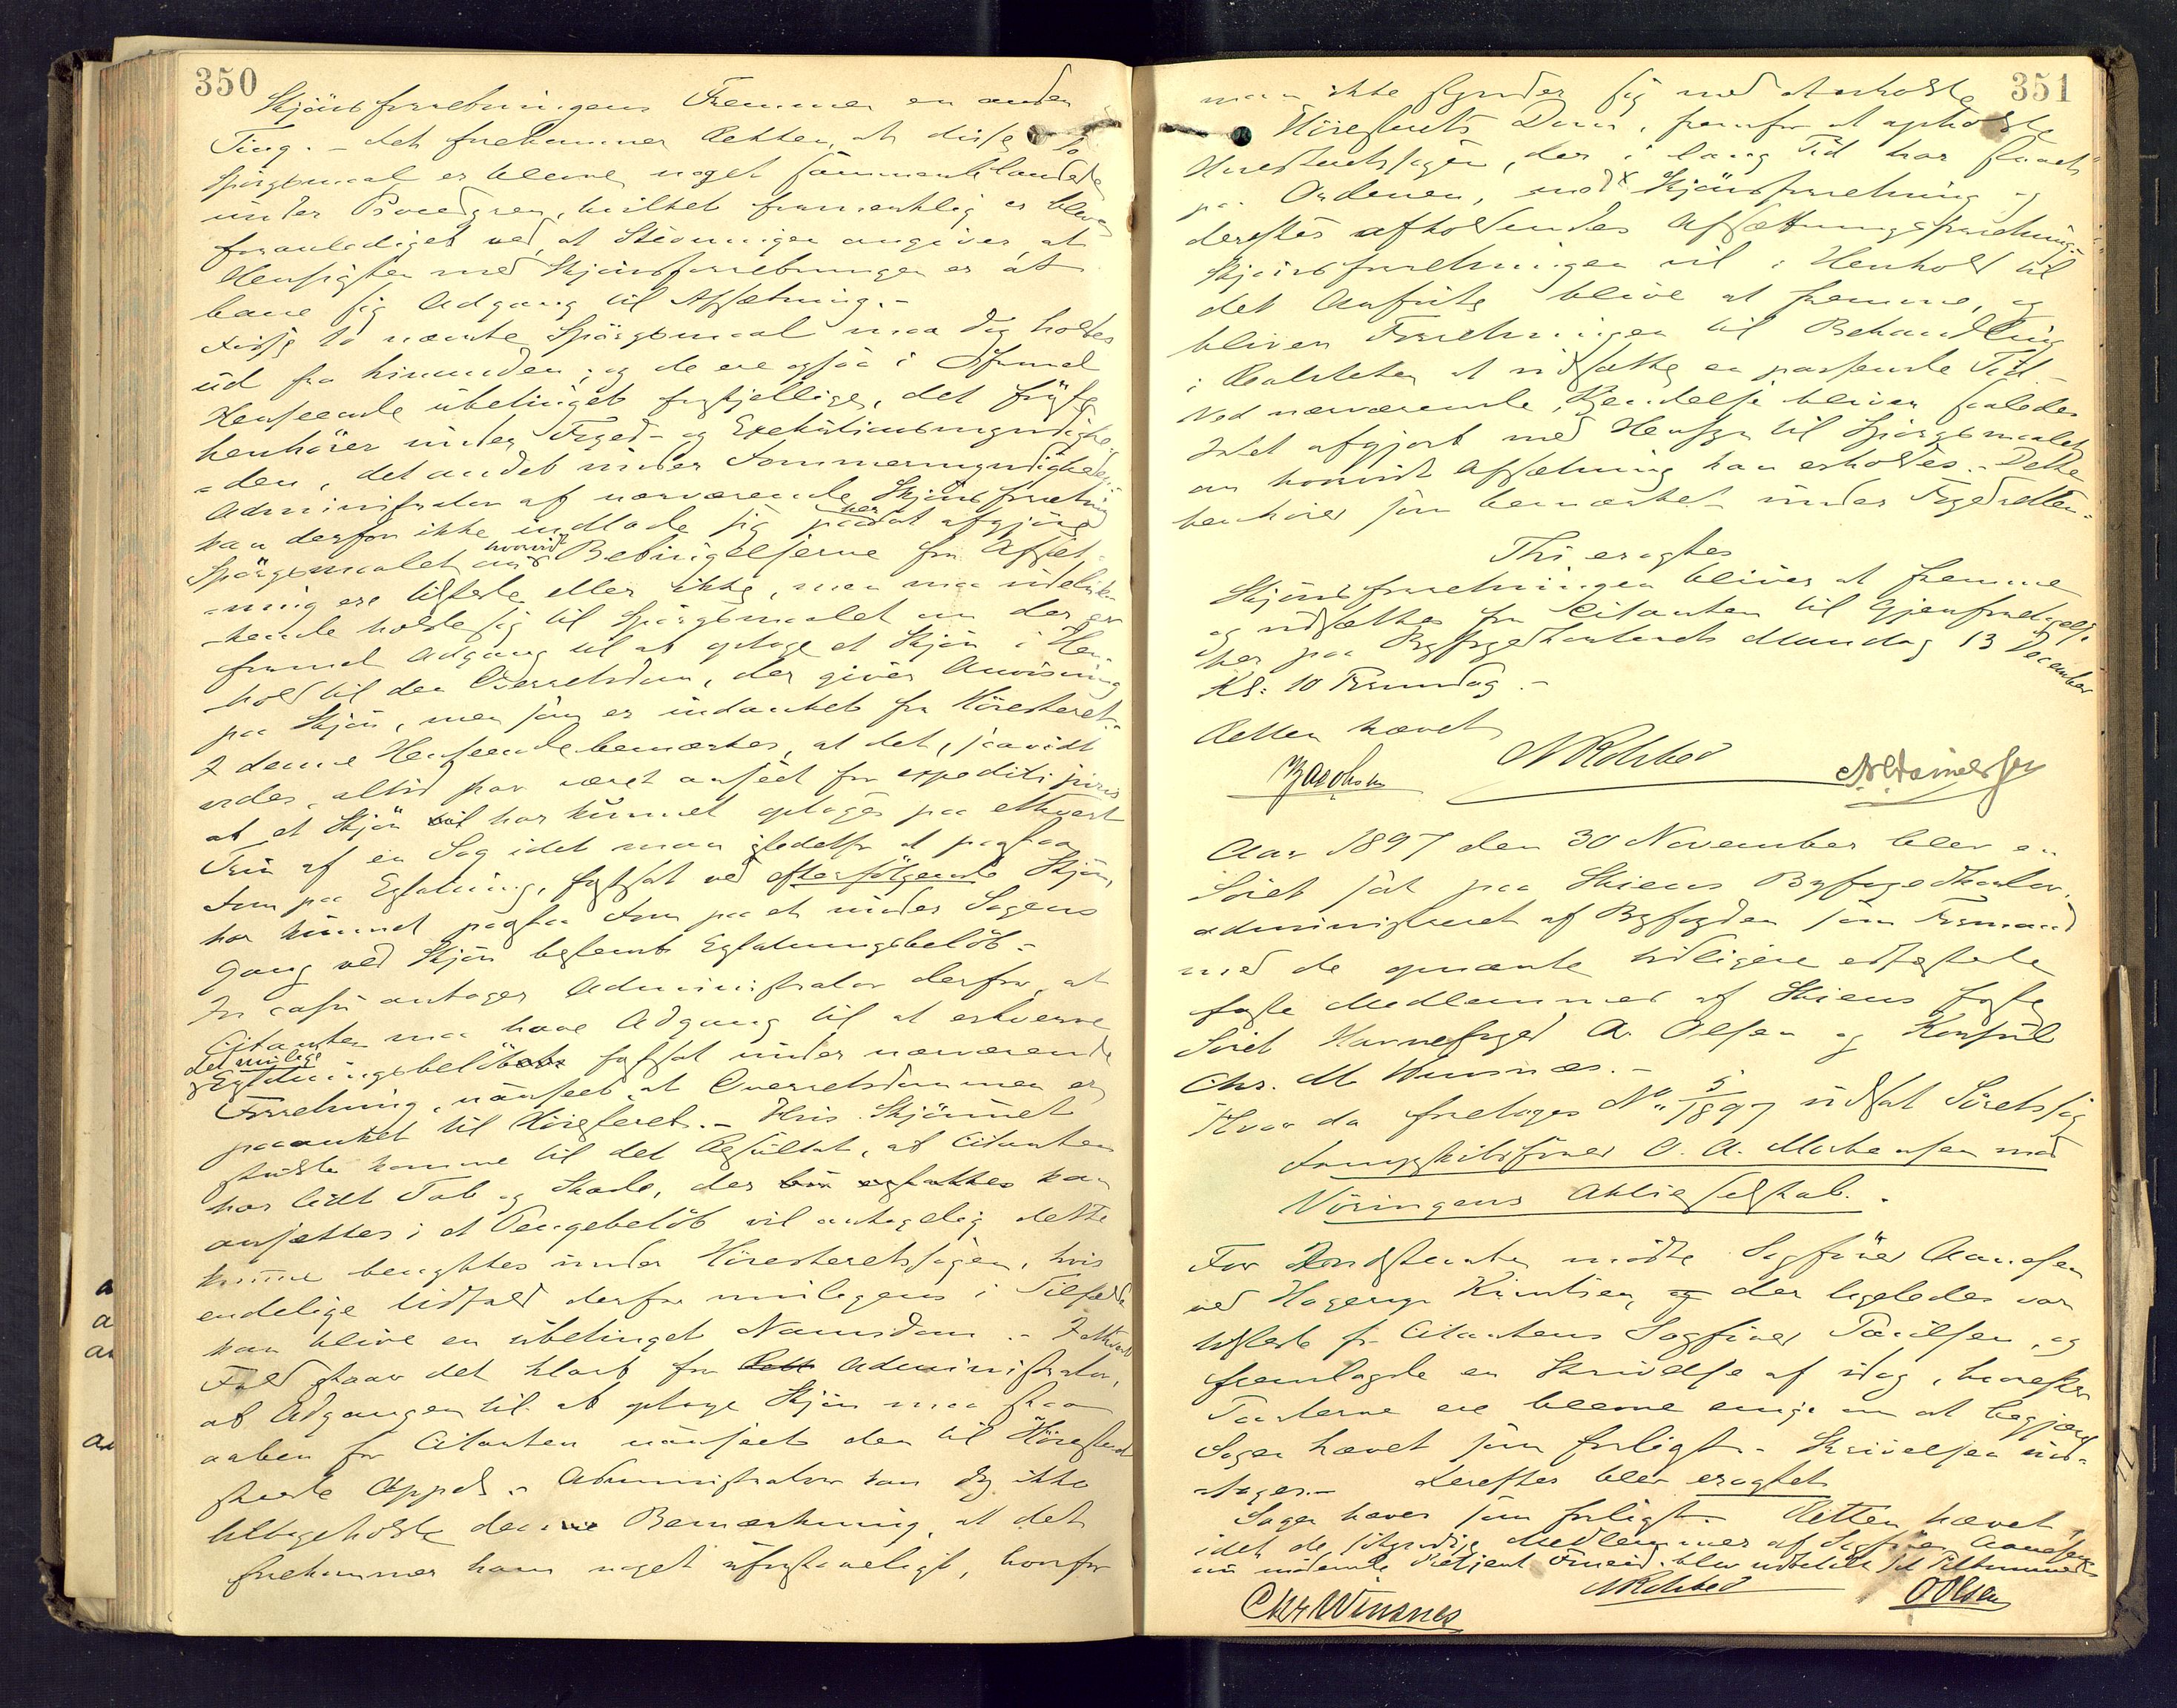 350
Skjönsforretningens Fremme en anden
Ting. – Det forekommer Retten, at disse to
Spörgsmaal er blevne noget sammenblandede
under Proceduren, hvilket formentlig er blevet
foranlediget ved, at Stevningen angiver, at
Hensigten med Skjönsforretningen er at
bane sig Adgang til Afsætning. –
Disse to nævnte Spörgsmaal maa dog holdes
ud fra hinanden; og de ere ogsaa i Formel
Henseende ubetinget forskjellige, det förste
henhörer under Foged- og Exekutionsmyndighe-
-den, det andet under Dommermyndigheden.
Administrator af nærværende Skjönsforretning
kan derfor ikke indlade sig her paa at afgjöre
Spörgsmaalet om hvorvidt Betingelserne for Afsæt-
-ning ere tilstede eller ikke, men maa udeluk-
kende holde sig til Spörgsmaalet om der er
formel Adgang til at optage et Skjön i Hen-
hold til den Overretsdom, der giver Anvisning
paa Skjön, men som er indanket for Höiesteret. –
I denne Henseende bemærkes, at det, saavidt
vides, altid har været anseet for expediti juris
at et Skjön har kunnet optages paa ethvert
Trin af en Sag idet man istedetfor at paastaa
Dom paa Erstatning, fastsat ved efterfölgende Skjön,
har kunnet paastaa Dom paa et under Sagens
Gang ved Skjön bestemt Erstatningsbelöb –
In casu antager Administrator derfor, at
Citanten maa have Adgang til at erhverve
det mulige
Erstatningsbelöb fastsat under nærværende
Forretning, uanseet at Overretsdommen er
paaanket til Höiesteret. – Hvis Skjönnet
skulde komme til det Resultat, at Citanten
har lidt Tab og Skade, der kan
ansættes i et Pengebelöb vil antagelig dette
kunne benyttes under Höiesteretssagen, hvis
endelige Udfald derfor muligens i Tilfælde
kan blive en ubetinget Navnsdom. – I ethvert
Fald staar det klart for Administrator,
at Adgangen til at optage Skjön maa staa
aaben for Citanten uanseet den til Höiesteret
skeede Appel. – Administrator kan dog ikke
tilbageholde denne Bemærkning, at det
forekommer ham noget uforstaaeligt, hvorfor
351
man ikke skynder sig med at erholde
Höiesterets Dom, fremfor at opholde
Höiesteretssagen, der i lang Tid har staaet
paa Ordenen, med Skjönsforretning og
derefter afholdendes Afsætningsforretning.
Skjönsforretningen vil i Henhold til
det Anförte blive at fremme, og
bliver Forretningen til Behandling
i Realiteten at udsætte en passende Tid –
Ved nærværende Kjendelse bliver saaledes
Intet afgjort med Hensyn til Spörgsmaalet
om hvorvidt Afsætning kan erholdes. – Dette
henhörer som bemærket under Fogedretten. –
Thi eragtes
Skjönsforretningen bliver at fremme
og udsættes for Citanten til Gjenforetagelse
her paa Byfogedkontoret Mandag 13 December
Kl: 10 Formidag. –
Retten hævet
Aar 1897 den 30 November blev en
Söret sat paa Skiens Byfogedkontor,
administreret af Byfogden som Formand
med de opnævnte tidligere edfæstede
faste Medlemmer af Skiens faste
Söret Havnefoged A. Olsen og Konsul
Chr. M Winsnes. –
Hvor da foretoges No 5/1897 udsat Söretssag
Dampskibsförer O. A. Mortensen mod
Vöringens Aktieselskab. –
For Indstevnte mödte Sagförer Aanesen
ved Hagerup Knutsen, der ligeledes var
tilstede for Citantens Sagförer Paulsen, og
fremlagde en Skrivelse af idag, hvorefter
Parterne ere blevne enige om at begjære
Sagen hævet som forligt. – Skrivelsen ind-
-tages. – Derefter blev eragtet
Sagen hæves som forligt. – Retten hævet,
Chr Winsnes
O Olsen